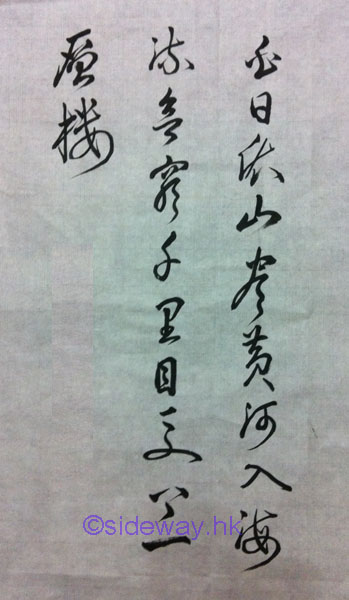 白日依山盡黃河入海
流欲窮千里目更上一
層樓
©sideway.hk